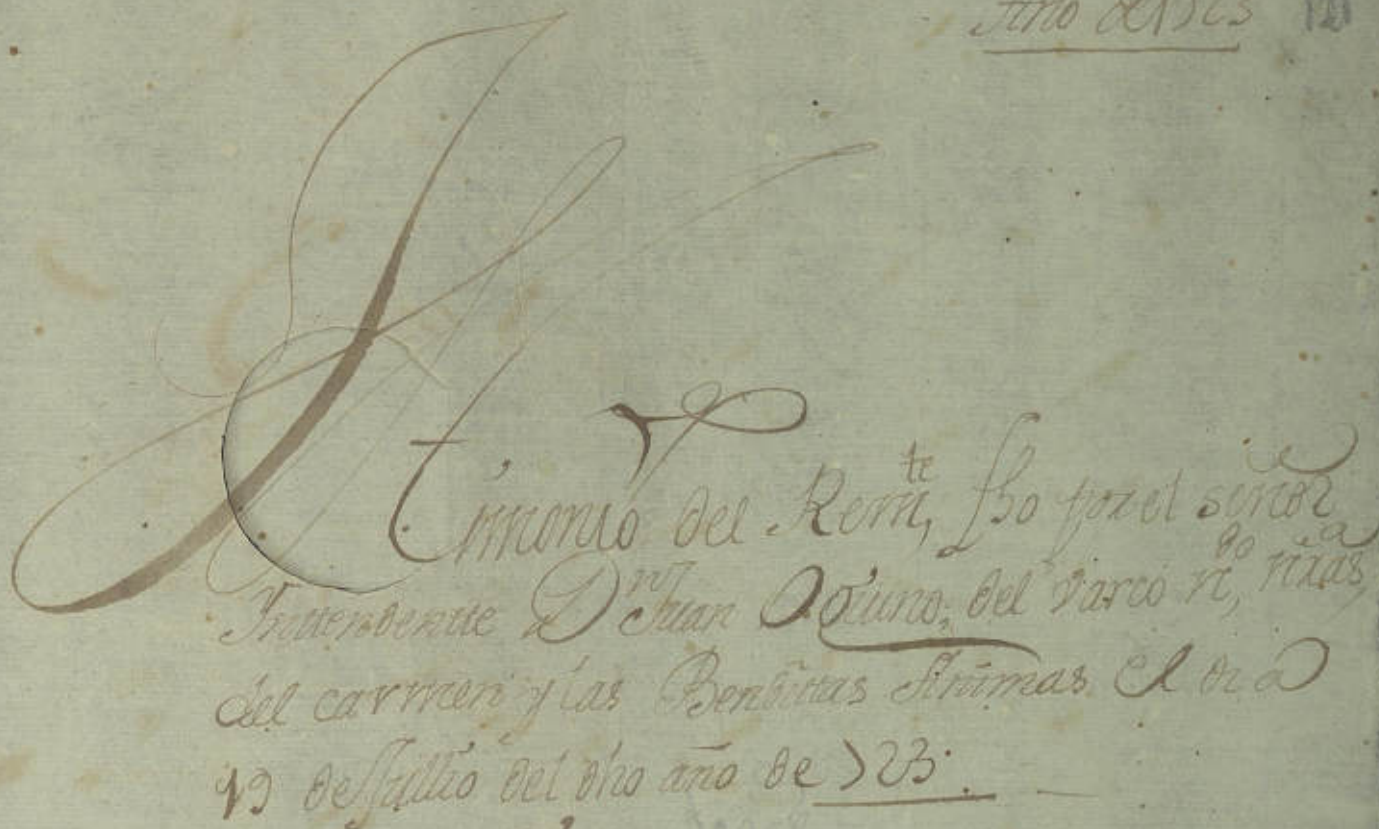 Año de 1723
Testimonio del Rem.te, fho por el señor
Inttendentte Dn Juan Oliuno, del varco n.do nra sa,
del carmen y las Bendittas Animas el dia
19 de Jullio del dho año de 723.